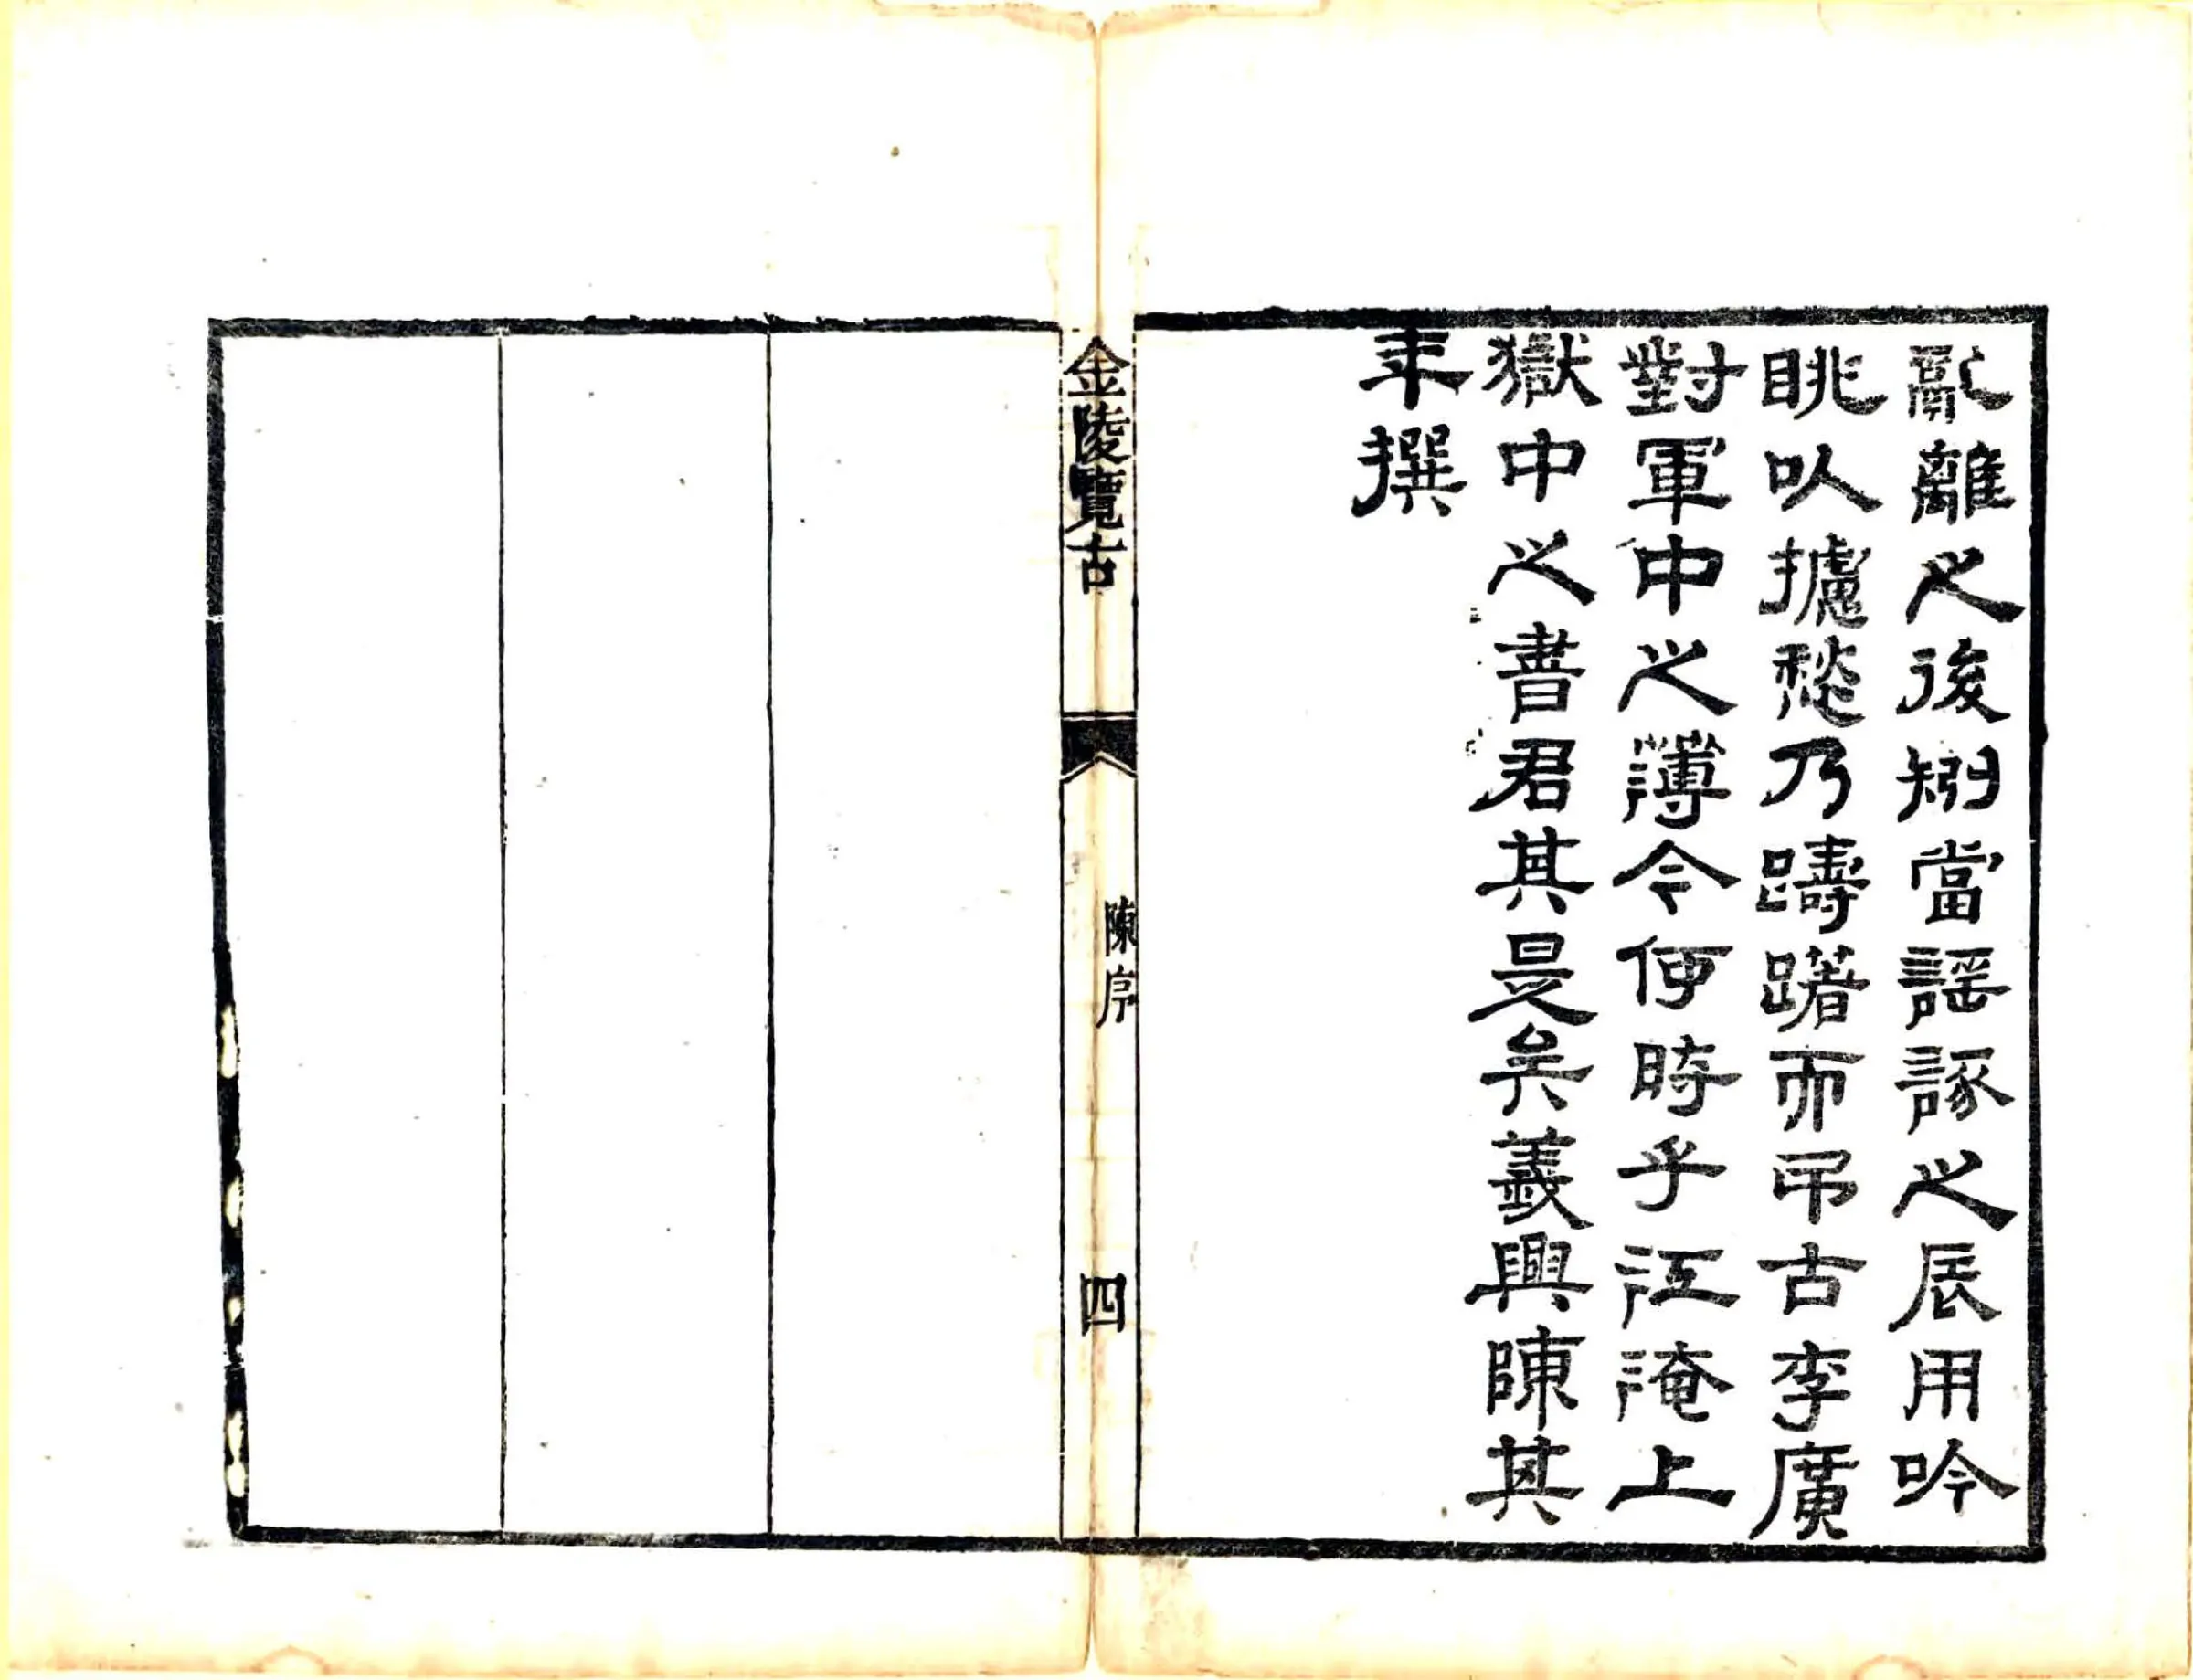 亂離之後矧當謡諑之辰用吟
眺以攄愁乃躊躇而弔古李廣
對軍中之薄今何時乎江淹上
獄中之書君其是矣義興陳其
年撰
金陵覽古
陳序
四